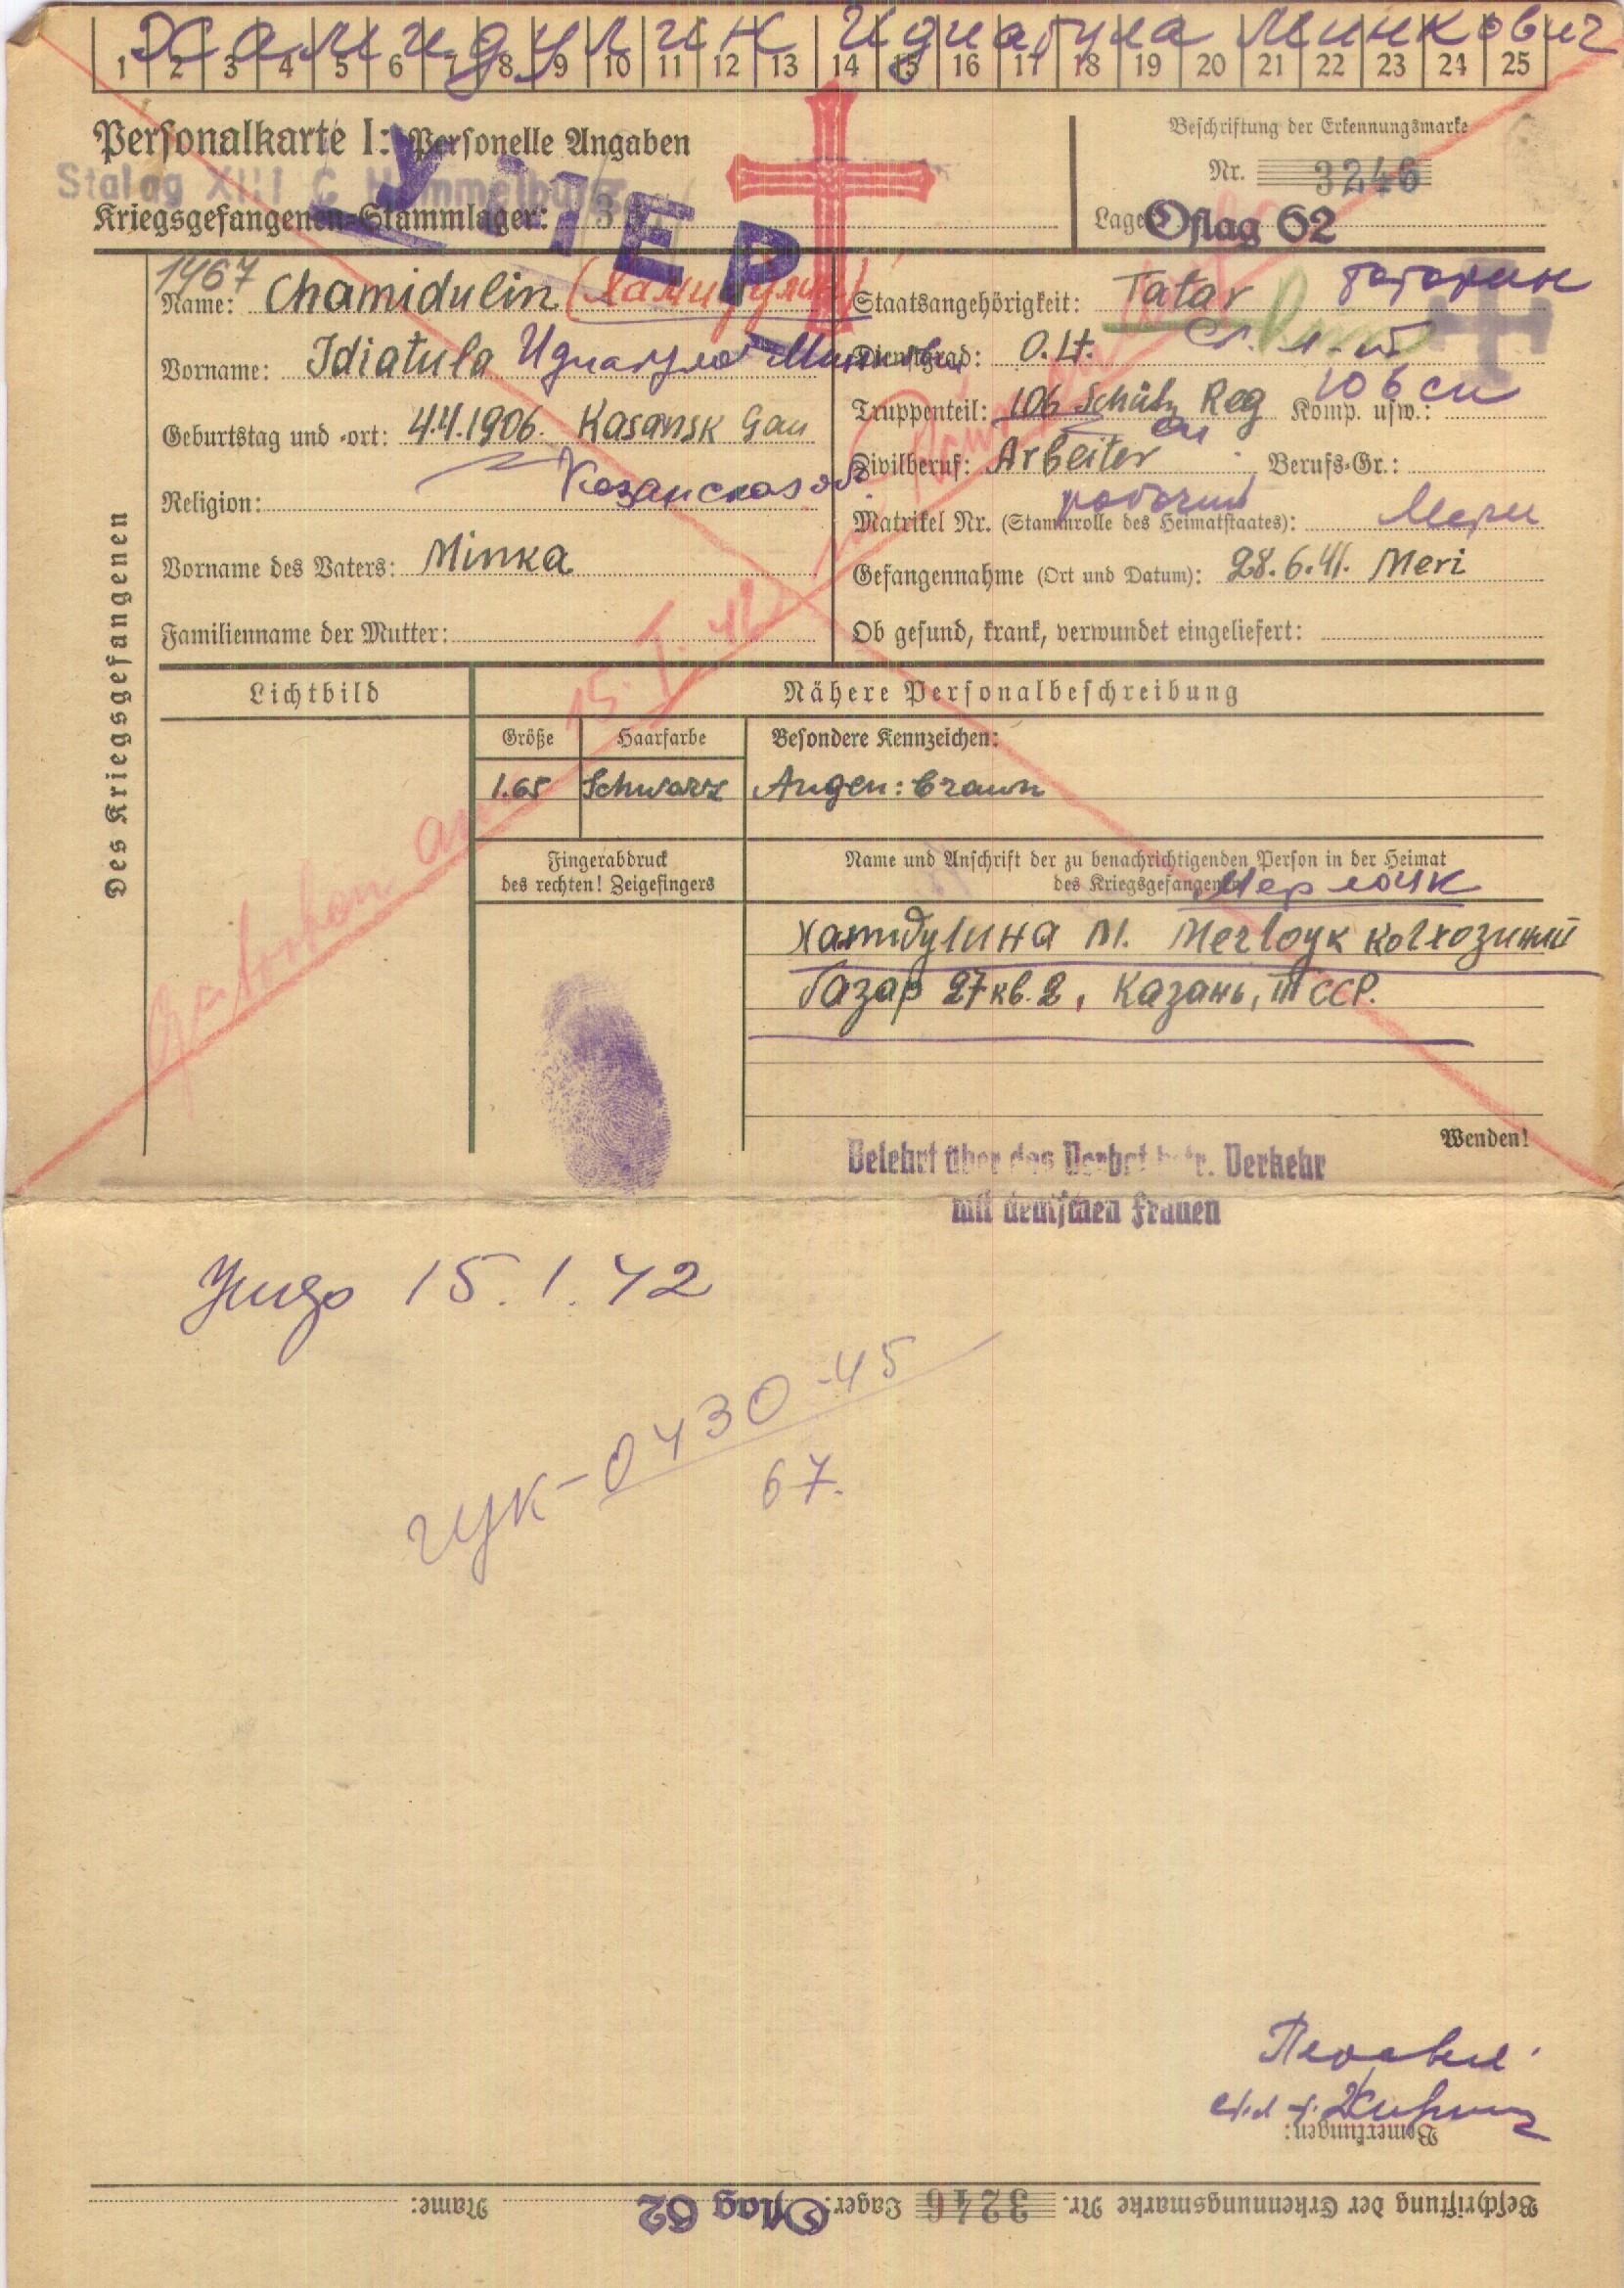 Хамидулин Идиатула Минкович
1 2 3 4 5 6 7 8 9 10 11 12 13 14 15 16 17 18 19 20 21 22 23 24 25
Personalkarte I: Personelle Angaben
Stalag XIII C Hammelburg
Kriegsgefangenen-Stammlager:
Beschriftung der Erkennungsmarke
Nr. 3246
Lager: Oflag 62
УМЕР
Des Kriegsgefangenen
1467
Name: Chamidulin (Хамидулин)
Vorname: Idiatula Идиатула Минкович
Geburtstag und -ort: 4.4.1906. Kasansk Gau
Казанская об.
Religion:
Vorname des Vaters: Minka
Familienname der Mutter:
Staatsangehörigkeit: Tatar татарин
Dienstgrad: O.Lt. ст. л-т
Truppenteil: 106 Schütz Reg Komp. usw.: 106 сп
Zivilberuf: Arbeiter Berufs-Gr.:
рабочий
Matrikel Nr. (Stammrolle des Heimatstaates): Мери
Gefangennahme (Ort und Datum): 28.6.41. Meri
Ob gesund, krank, verwundet eingeliefert:
Gestorben am 15.I.42
Lichtbild
Nähere Personalbeschreibung
Größe Haarfarbe Besondere Kennzeichen:
1.65 Schwarz Augen: braun
Fingerabdruck
des rechten! Zeigefingers
Name und Anschrift der zu benachrichtigenden Person in der Heimat
des Kriegsgefangenen
Хамидулина М. Мегвоук колхозиний
базар 27 кв. 2, Казань, ТССР.
Wenden!
Belehrt über das Verbot betr. Verkehr
mit deutschen Frauen
15.1.42
ГУК-0430-45
67.
Bemerkungen:
Beschriftung der Erkennungsmarke Nr. 3246 Lager: Oflag 62 Name: